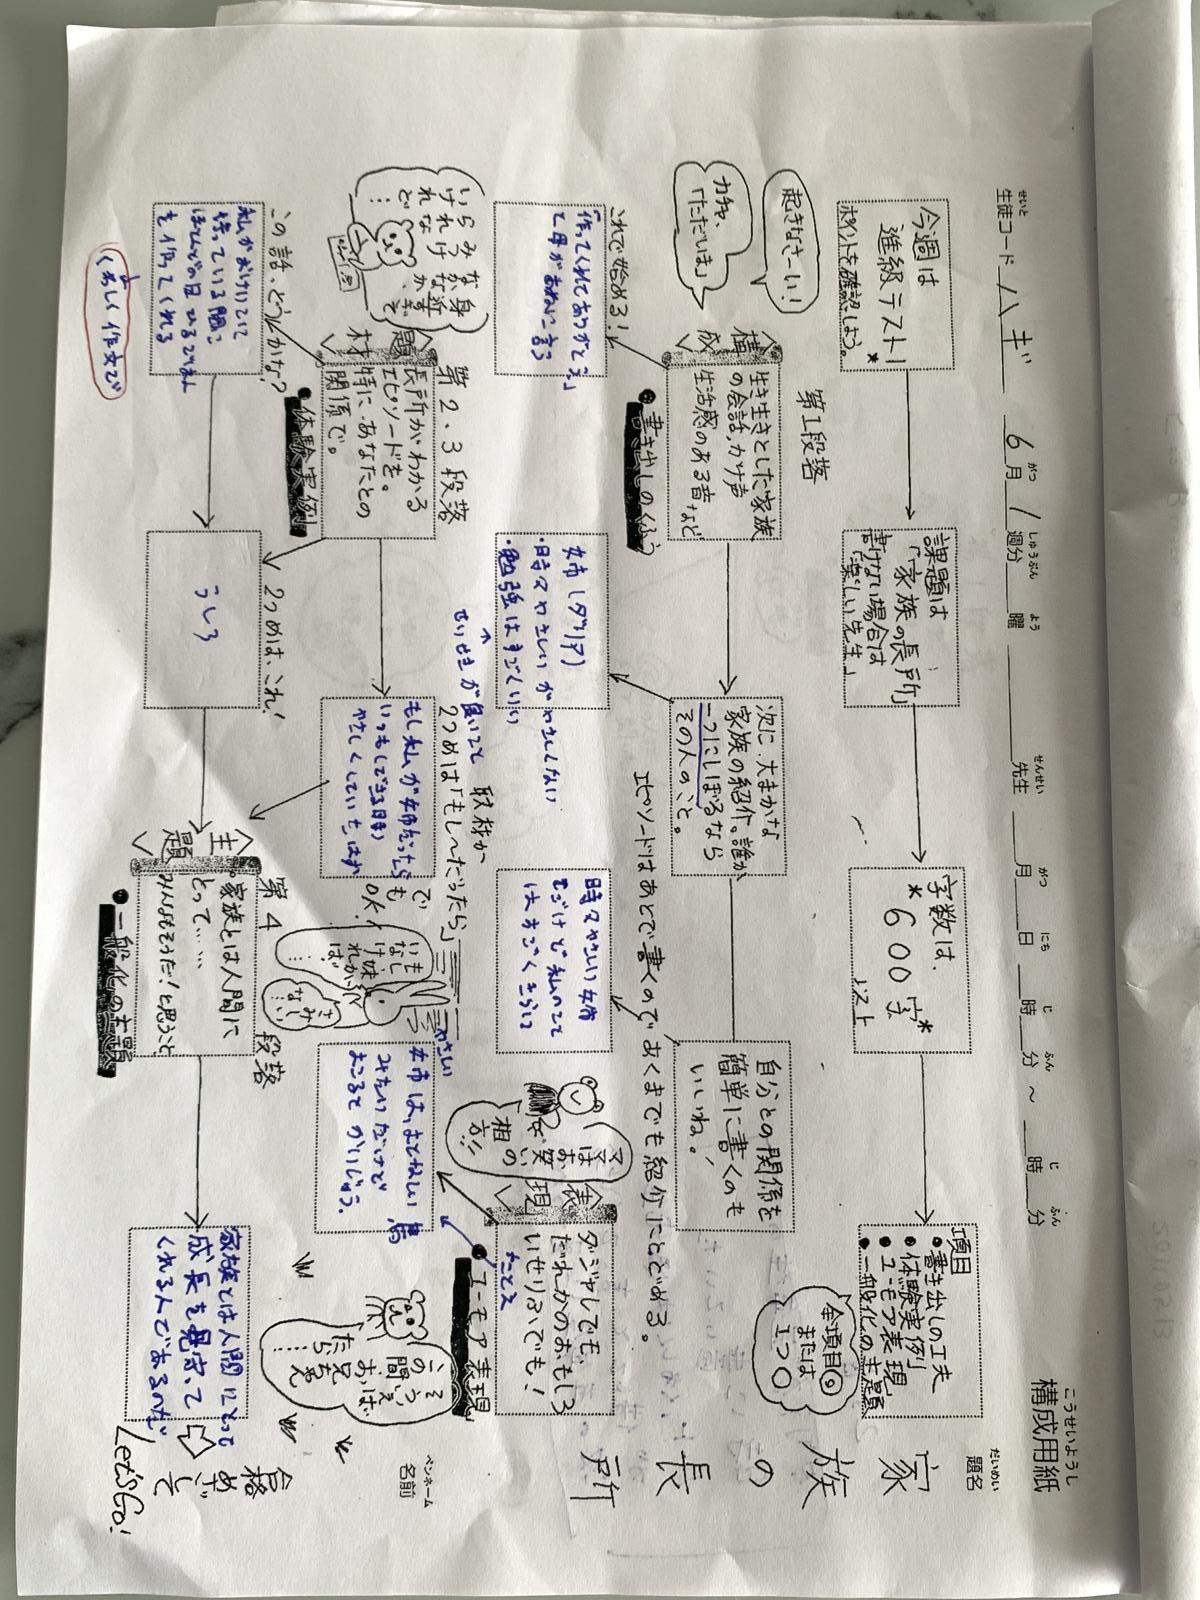 こうせいようし
構成用紙
せいと
生徒コード ハギ
6月1週分 曜
先生 月 日 時 分 ~ 時 分
がつ しゅうぶん よう せんせい がつ にち じ ふん じ ふん
だいめい
題名
家族の長所
ペンネーム
名前
今週は
進級テスト!
ポイントを確認しよう。*
課題は
「家族の長所」
書けない場合は
「楽しい先生」
字数は、
*600字*
以上
項目
●書き出しの工夫
●体験実例
●ユーモア表現
●一般化の主題
全項目◎
または
1つ〇
第1段落
起きなさーい!
カチャ、
「ただいま」
<構成>
生き生きとした家族
の会話、かけ声
生活感のある音など
●書き出しの工夫
次に、大まかな
家族の紹介。誰か
一つにしぼるなら
その人のこと。
自分との関係を
簡単に書くのも
いいね。
エピソードはあとで書くのであくまでも紹介にとどめる。
これで始める!
「作ってくれてありがとう」
と母があねに言う
姉(ダリア)
・時々やさしいがやさしくない
・勉強はすごくいい
時々やさしい姉
だけど私のこと
はすごくきらい
<表現>
ダジャレでも、
だれかのおもしろ
いせりふでも!
●ユーモア表現
たとえ
ママは
お笑い
の
相方!!
第2.3段落
<題材>
長所がわかる
エピソードを。
特にあなたとの
関係で。
●体験実例
みな身
らうが近
いけな、
けれか
れなす
ど…
せいせきが良いこと
取材か
2つめは「もし〜だったら」
でも
OK!
もし私が姉だったら
いつもしできる日も
やさしくしていたはず
いもし
な妹が
ければ
……
やさしい
姉は、おとなしい鳥
みたいだけど
おこると かいじゅう。
そう、
この間、
お兄ちゃん
たら…
この話、どうかな?
私がおけいこいって
待っている間に
ほとんどの日 ひるごはん
を作ってくれる
くわしく作文で
2つめは、これ!
うしろ
<主題>
第4段落
。家族とは人間に
とって……
みんなもそうだ!と思うこと
●一般化の主題
家族とは人間にとって
成長を見守って
くれる人であるのだ
合格
めざして
Let'sGo!